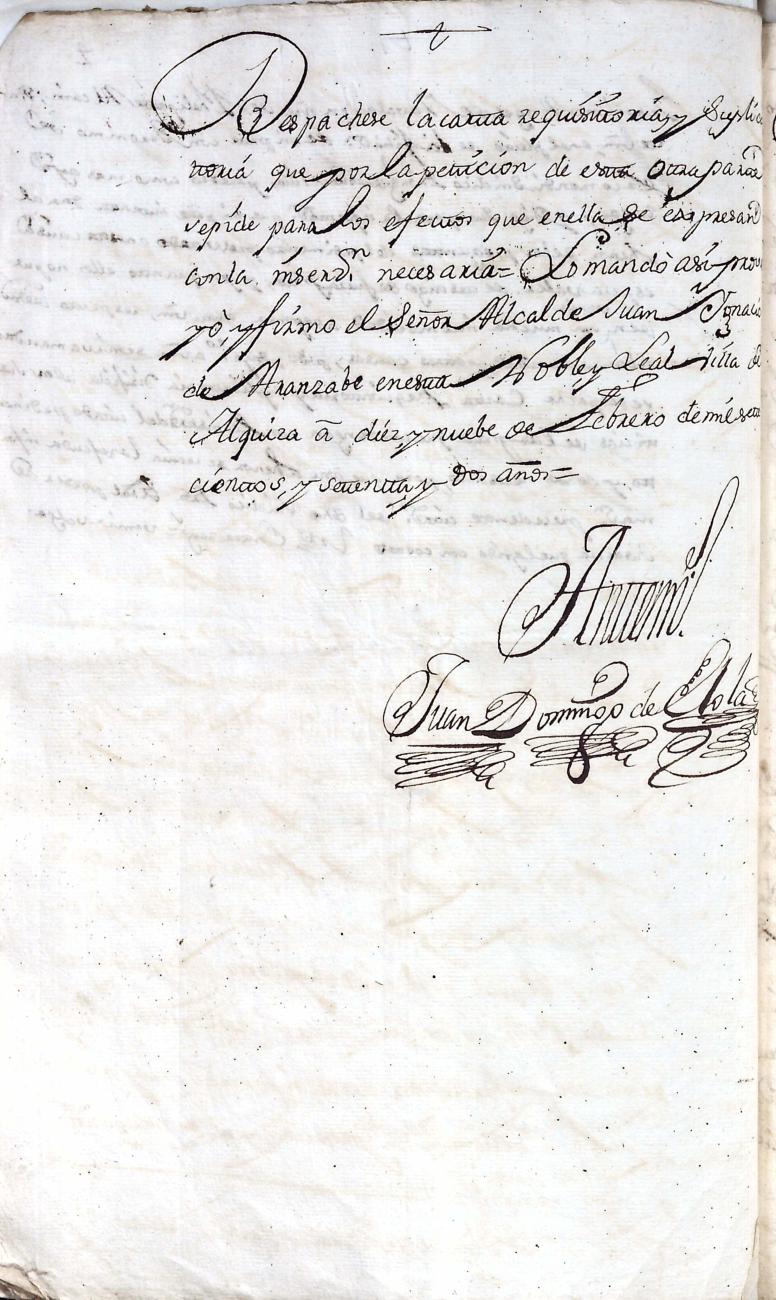 Despachese la carta requisitoria, y Suplica
toria que por la peticion de esta otra parte
se pide para los efectos que en ella se expresan
con la inserz.n necesaria= Lo mandò asi prove
yò y firmo el Señor Alcalde Juan Ygnacio
de Aranzabe en esta Noble y Leal villa de
Alquiza à diez, y nuebe de Febrero de mil sete
cientos, y setenta, y dos años=
Antemi.
Juan Domingo de